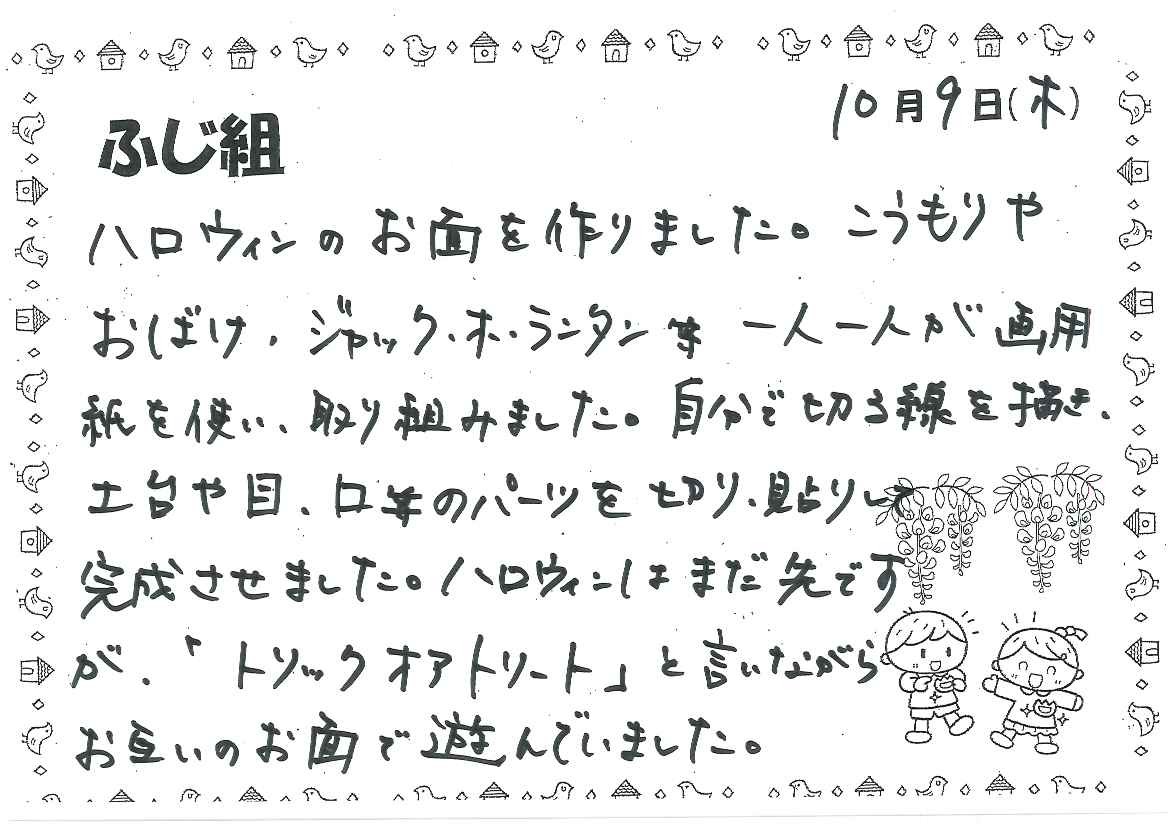 10月9日(木)
ふじ組
ハロウィンのお面を作りました。こうもりや
おばけ、ジャック・オ・ランタン等 一人一人が画用
紙を使い、取り組みました。自分で切る線を描き、
土台や目、口等のパーツを切り、貼りして
完成させました。ハロウィンはまだ先です
が、「トリックオアトリート」と言いながら
お互いのお面で遊んでいました。